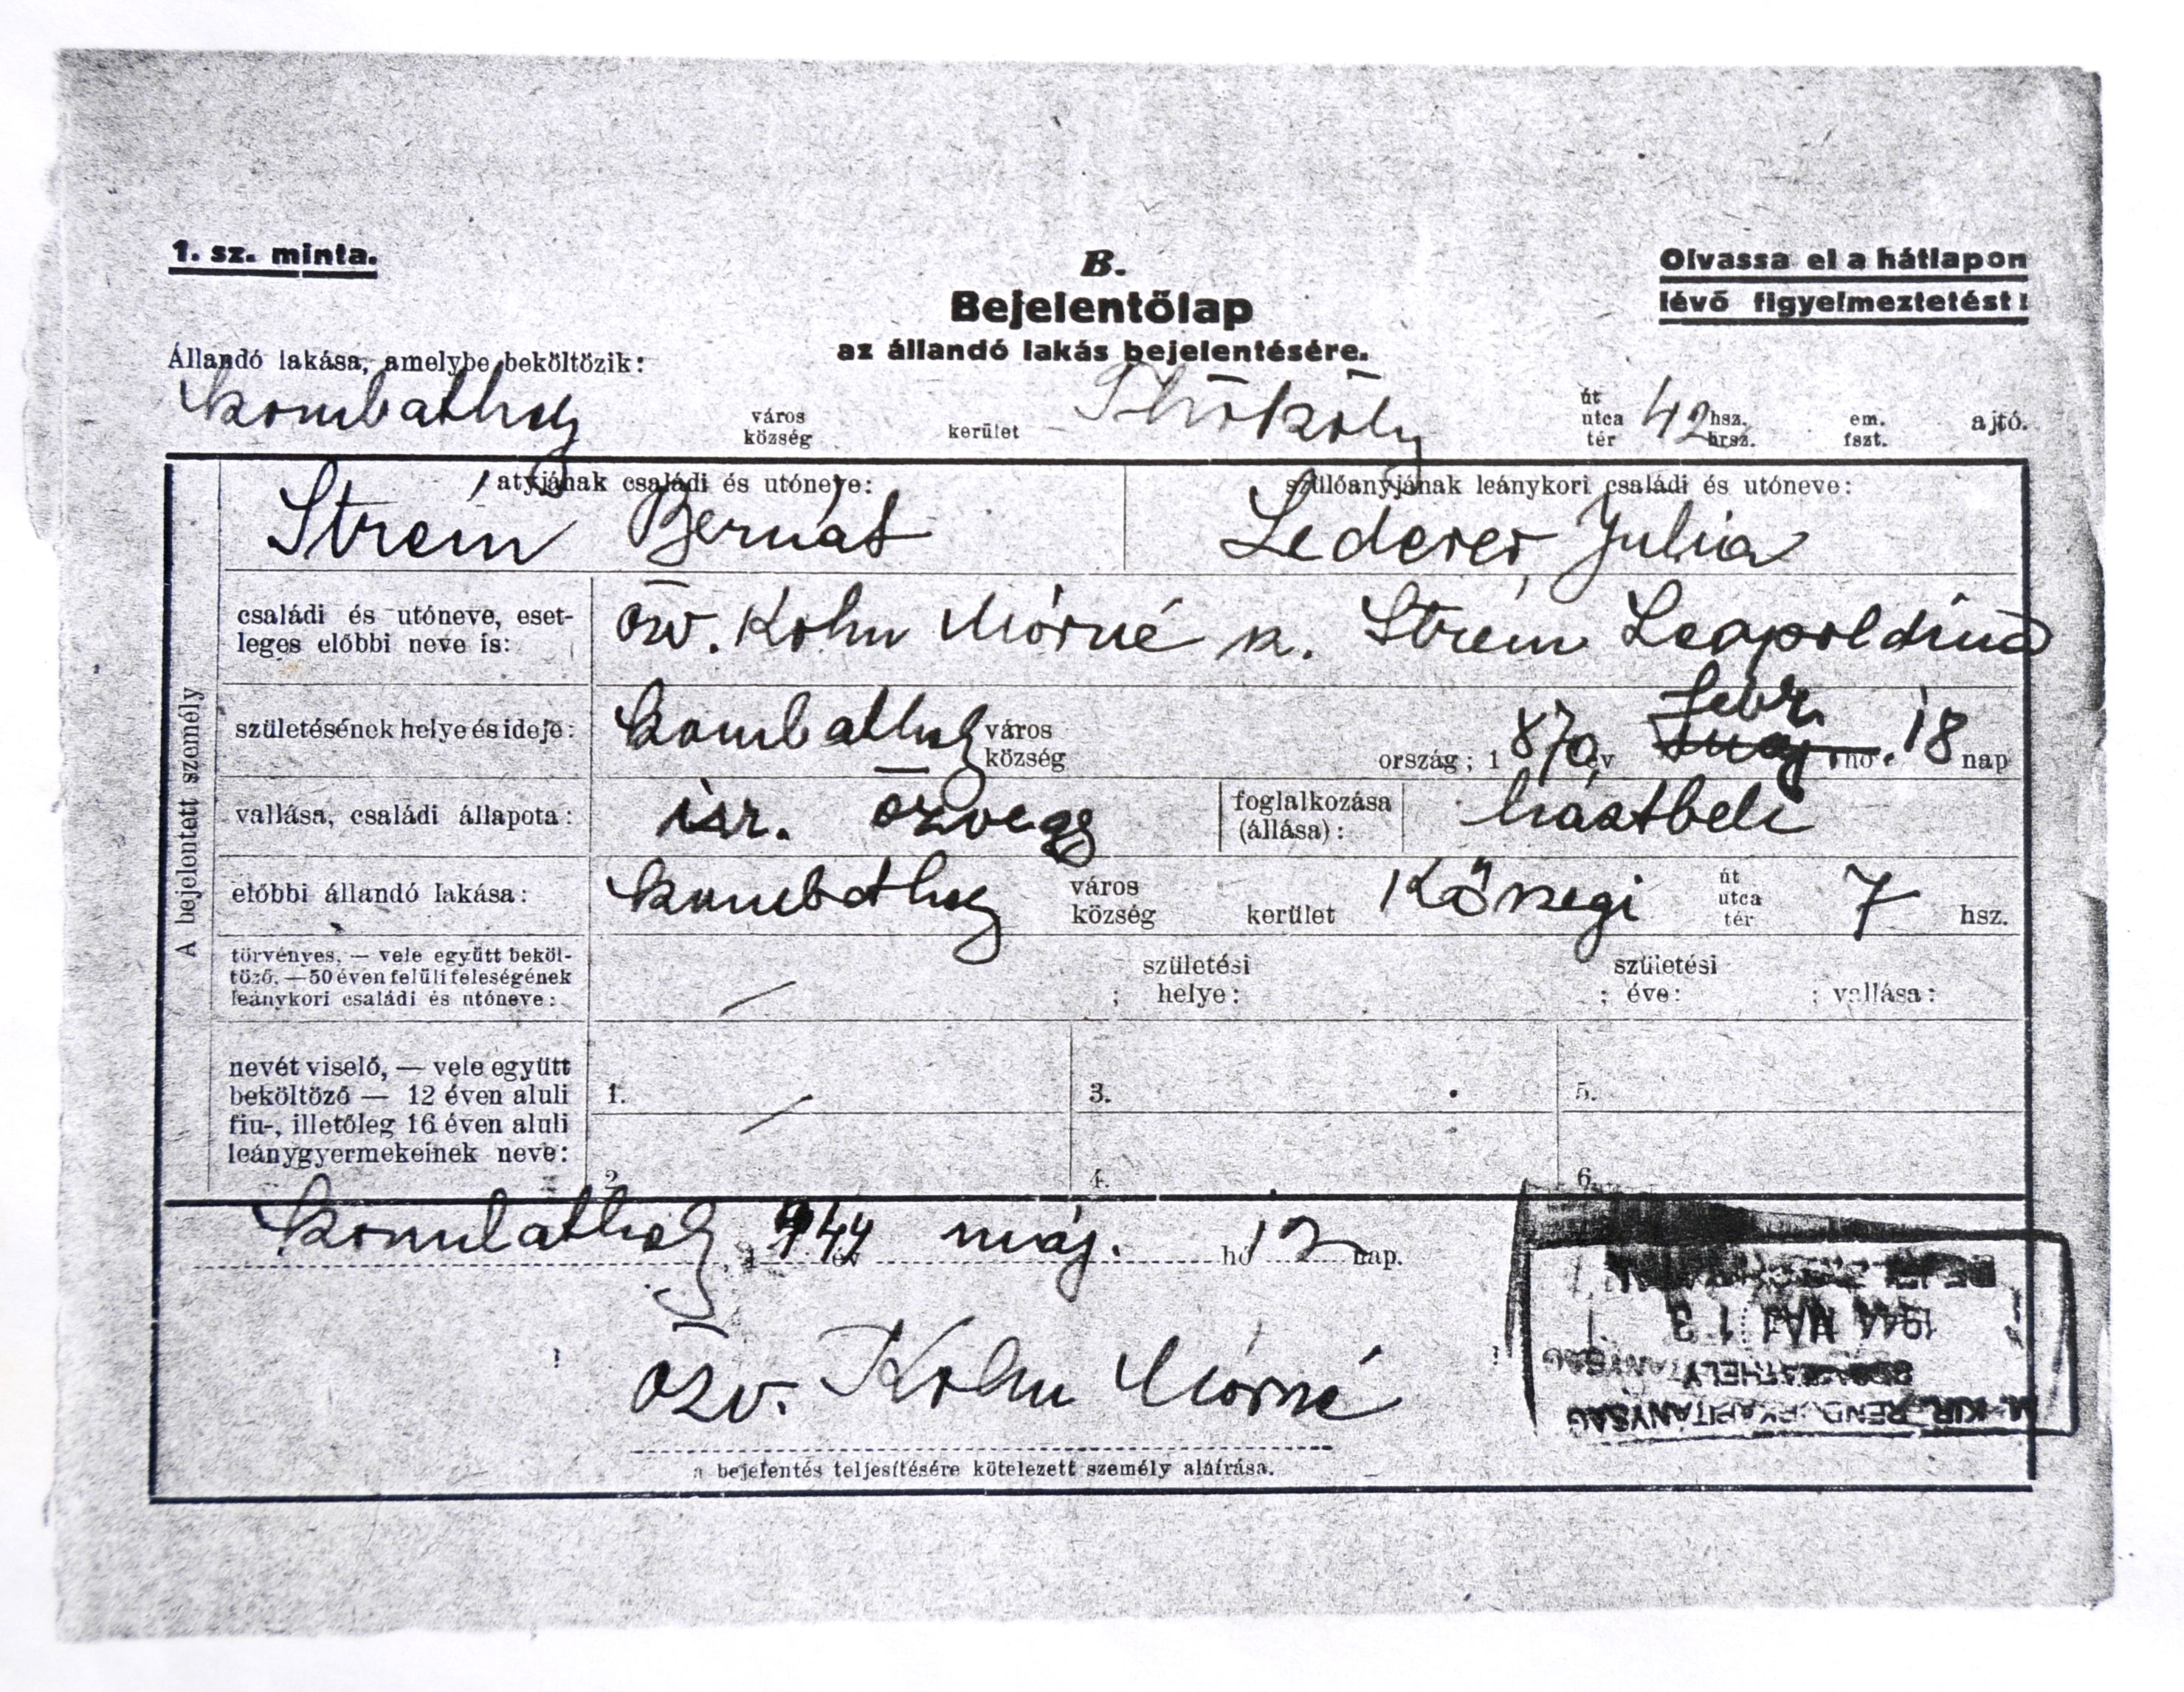 1. sz. minta.
B.
Olvassa el a hátlapon
lévő figyelmeztetést!
Bejelentőlap
az állandó lakás bejelentésére.
Állandó lakása, amelybe beköltözik:
kombathely város község kerület Thököly út utca tér 42 hsz. hrsz. em. fszt. ajtó.
A bejelentett személy
atyjának családi és utóneve:
Strém Bernát
szülőanyjának leánykori családi és utóneve:
Lederer Julia
családi és utóneve, eset-
leges előbbi neve is:
özv. Kohn Mórné sz. Strém Leopoldina
születésének helye és ideje: kombathely város község ország; 1870 év febr. máj. hó 18 nap
vallása, családi állapota: isr. özvegy foglalkozása (állása): háztbeli
előbbi állandó lakása: kombathely város község kerület Kőszegi út utca tér 7 hsz.
törvényes, — vele együtt beköl-
töző, — 50 éven felüli feleségének
leánykori családi és utóneve: — ; születési helye: ; születési éve: ; vallása:
nevét viselő, — vele együtt
beköltöző — 12 éven aluli
fiu-, illetőleg 16 éven aluli
leánygyermekeinek neve:
1. — 3. 5.
2. 4. 6.
kombathely, 1944 év máj. hó 12 nap.
özv. Kohn Mórné
a bejelentés teljesítésére kötelezett személy aláírása.
M. KIR. RENDŐRKAPITÁNYSÁG
SZOMBATHELY
1944 MÁJ 13